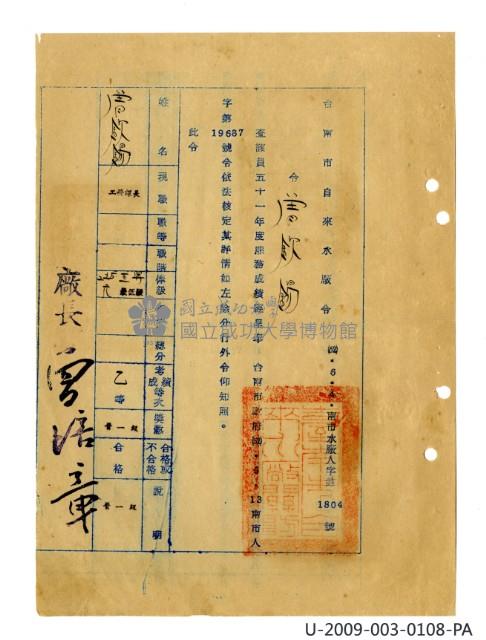 台南市自來水廠令 52.6.4.南市水廠人字第1804號
令 曾欽賜
查該員五十一年度服務成績經呈奉 台南市政府52.5.13南市人
字第19687號令依法核定其詳情如左除分行外合仰知照。
此令
姓名 現職 職等 職階俸級 總分 考績成等次 獎懲 合格或不合格 說明
曾欽賜 工務課長 乙等 晉一級 合格 晉一級
廠長
國立成功大學
國立成功大學博物館
U-2009-003-0108-PA